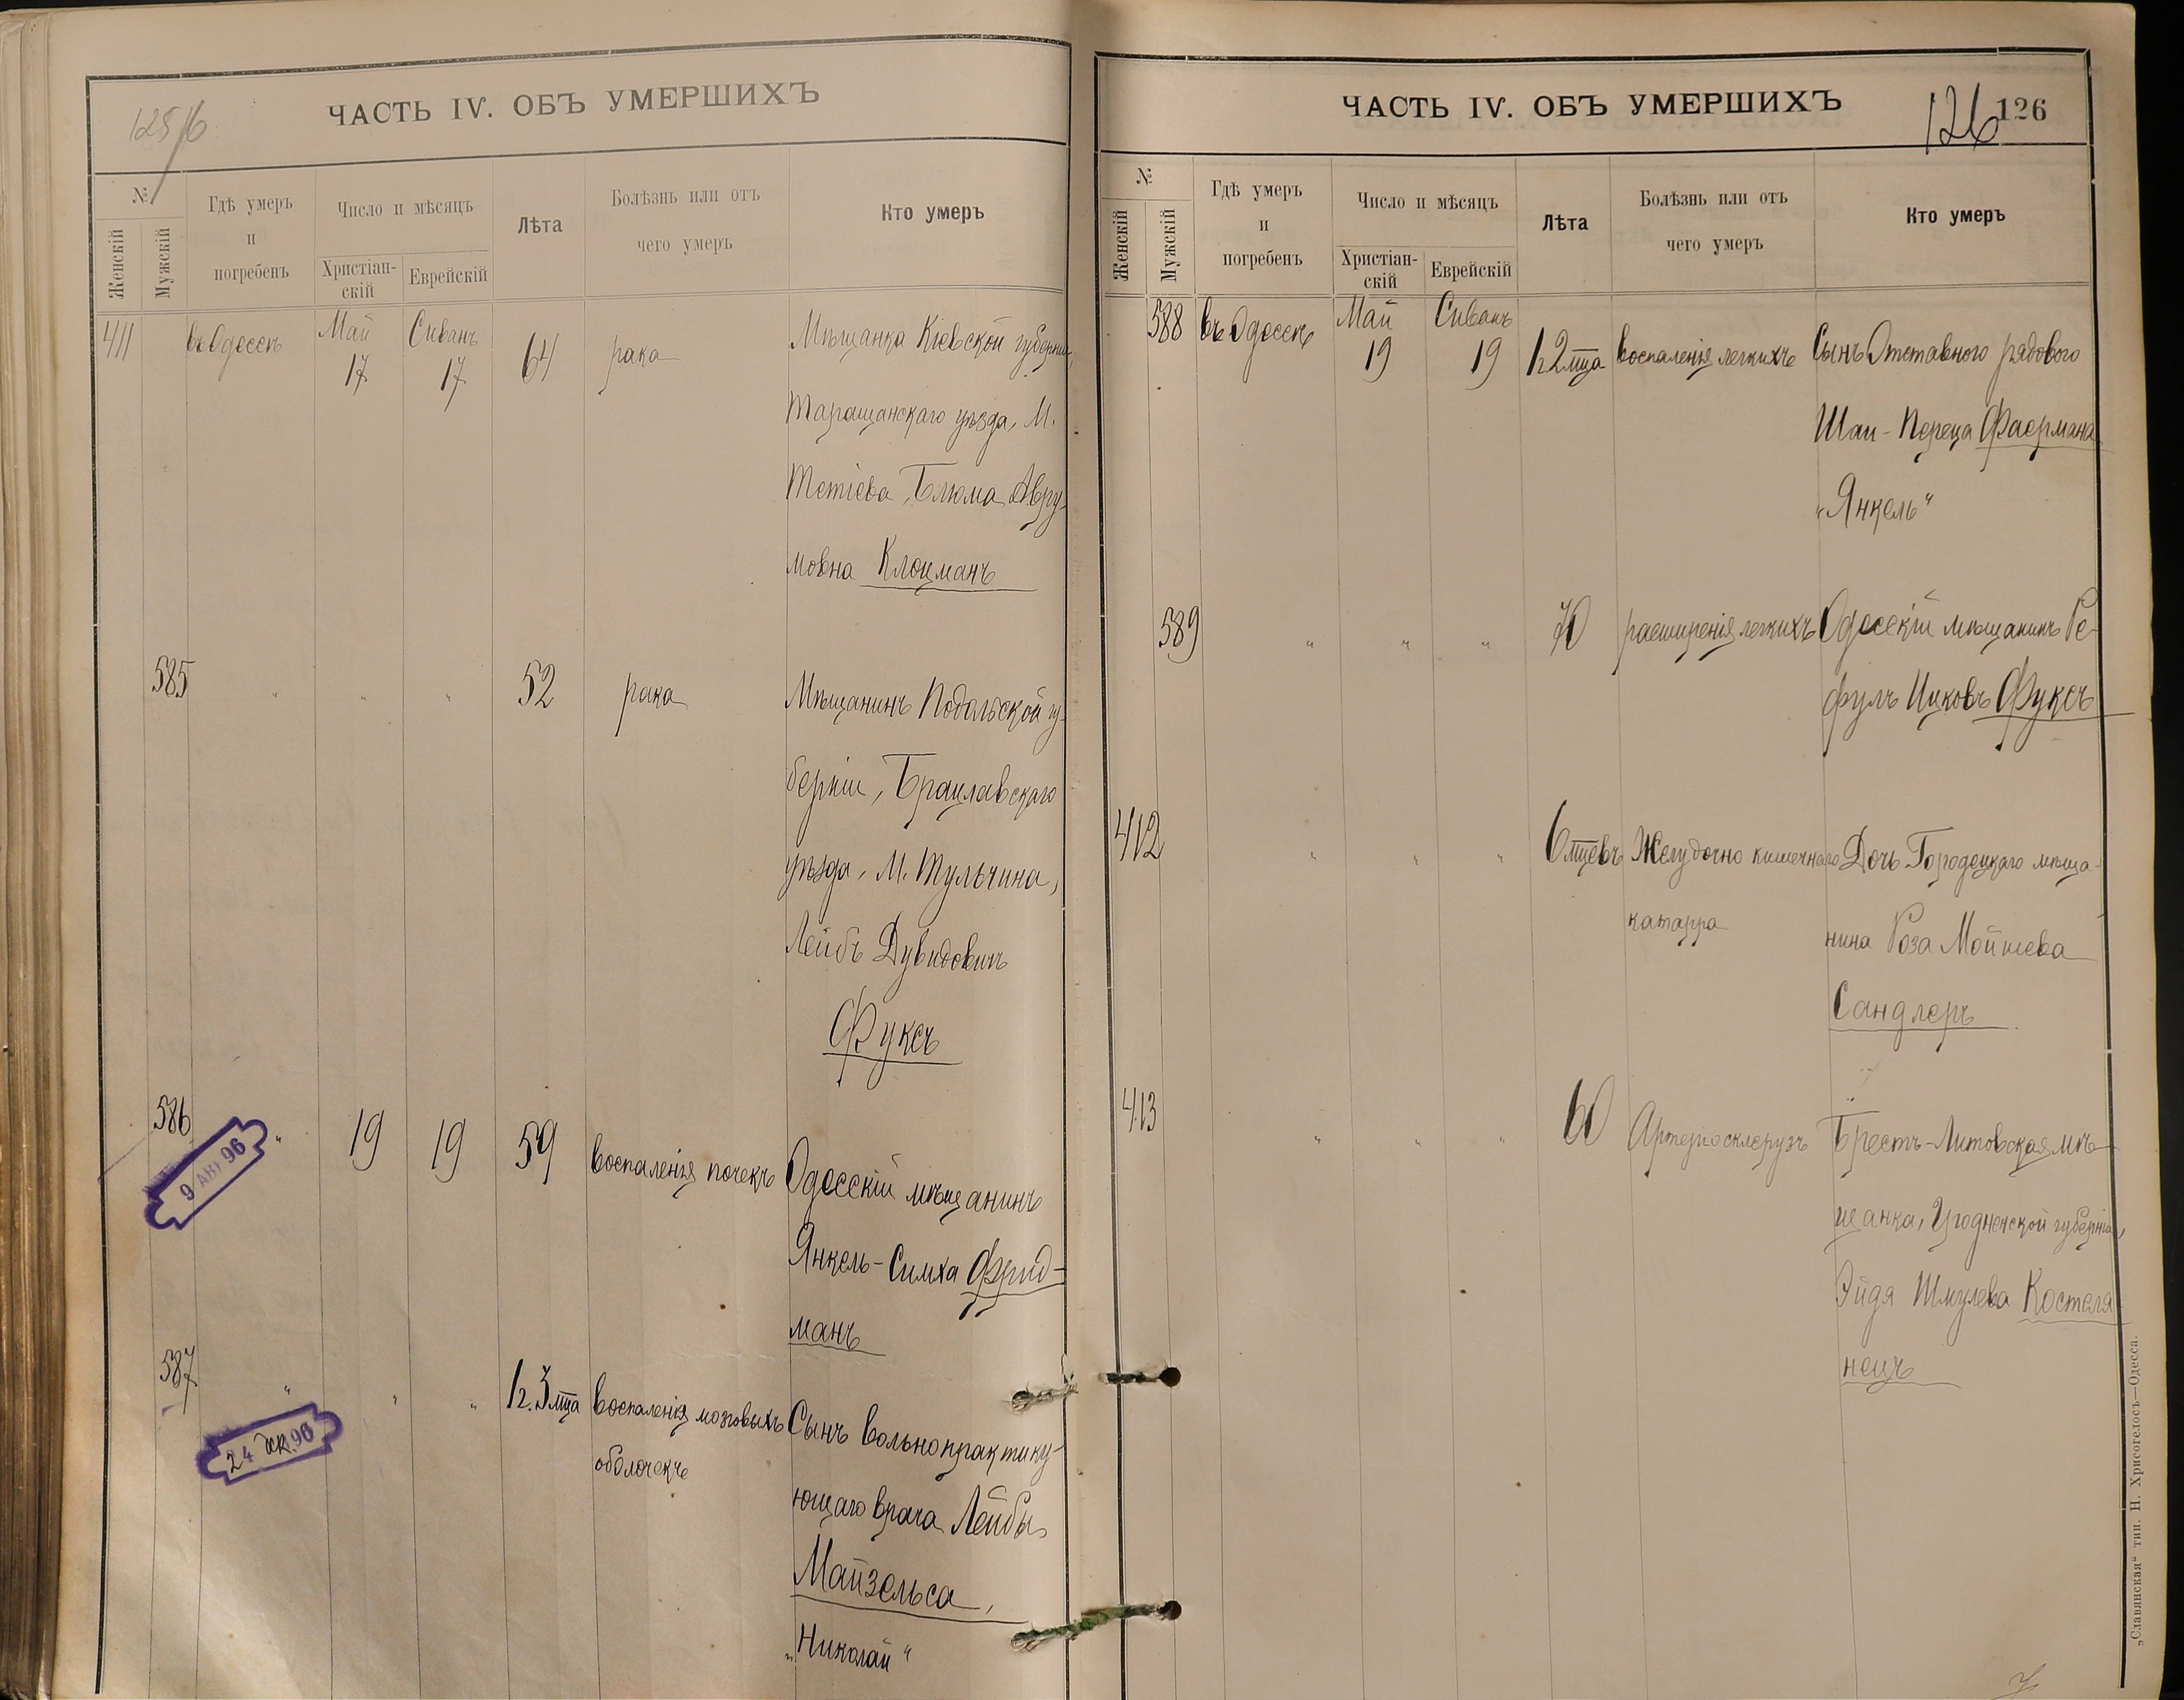 125/6
ЧАСТЬ IV. ОБЪ УМЕРШИХЪ
№
Женскій
Мужскій
Гдѣ умеръ
и
погребенъ
Число и мѣсяцъ
Христіан-
скій
Еврейскій
Лѣта
Болѣзнь или отъ
чего умеръ
Кто умеръ
411 въ Одессѣ Май 17 Сиванъ 17 64 рака Мѣщанка Кіевской губерніи,
Таращанскаго уѣзда, М.
Тетіева, Блюма Авру-
мовна Клоцманъ
585 " " " 52 рака Мѣщанинъ Подольской гу-
берніи, Брацлавскаго
уѣзда, М. Тульчина,
Лейбъ Дувидовичъ
Фуксъ
586 " 19 19 59 воспаленія почекъ Одесскій мѣщанинъ
9 АВГ 96
Янкель-Симха Фрид-
манъ
587 " " " 1 г. 3 мѣца воспаленія мозговыхъ Сынъ вольнопрактику-
оболочекъ
24 дек. 96
ющаго врача Лейбы
Майзельса,
"Николай"
ЧАСТЬ IV. ОБЪ УМЕРШИХЪ
126 126
№
Женскій
Мужскій
Гдѣ умеръ
и
погребенъ
Число и мѣсяцъ
Христіан-
скій
Еврейскій
Лѣта
Болѣзнь или отъ
чего умеръ
Кто умеръ
588 въ Одессѣ Май 19 Сиванъ 19 1 г. 2 мѣца воспаленія легкихъ Сынъ Отставного рядового
Шаи-Переца Фаермана
"Янкель"
589 " " " 70 расширенія легкихъ Одесскій мѣщанинъ Ре-
фулъ Ицковъ Фуксъ
412 " " " 6 мцевъ Желудочно кишечнаго Дочь Городецкаго мѣща-
катарра
нина Роза Мойшева
Сандлеръ
413 " " " 60 Артеріосклерузъ Брестъ-Литовская мѣ-
щанка, Гродненской губерніи,
Эйдя Шмулева Костеля-
нецъ
„Славянская“ тип. Н. Хрисогелосъ—Одесса.